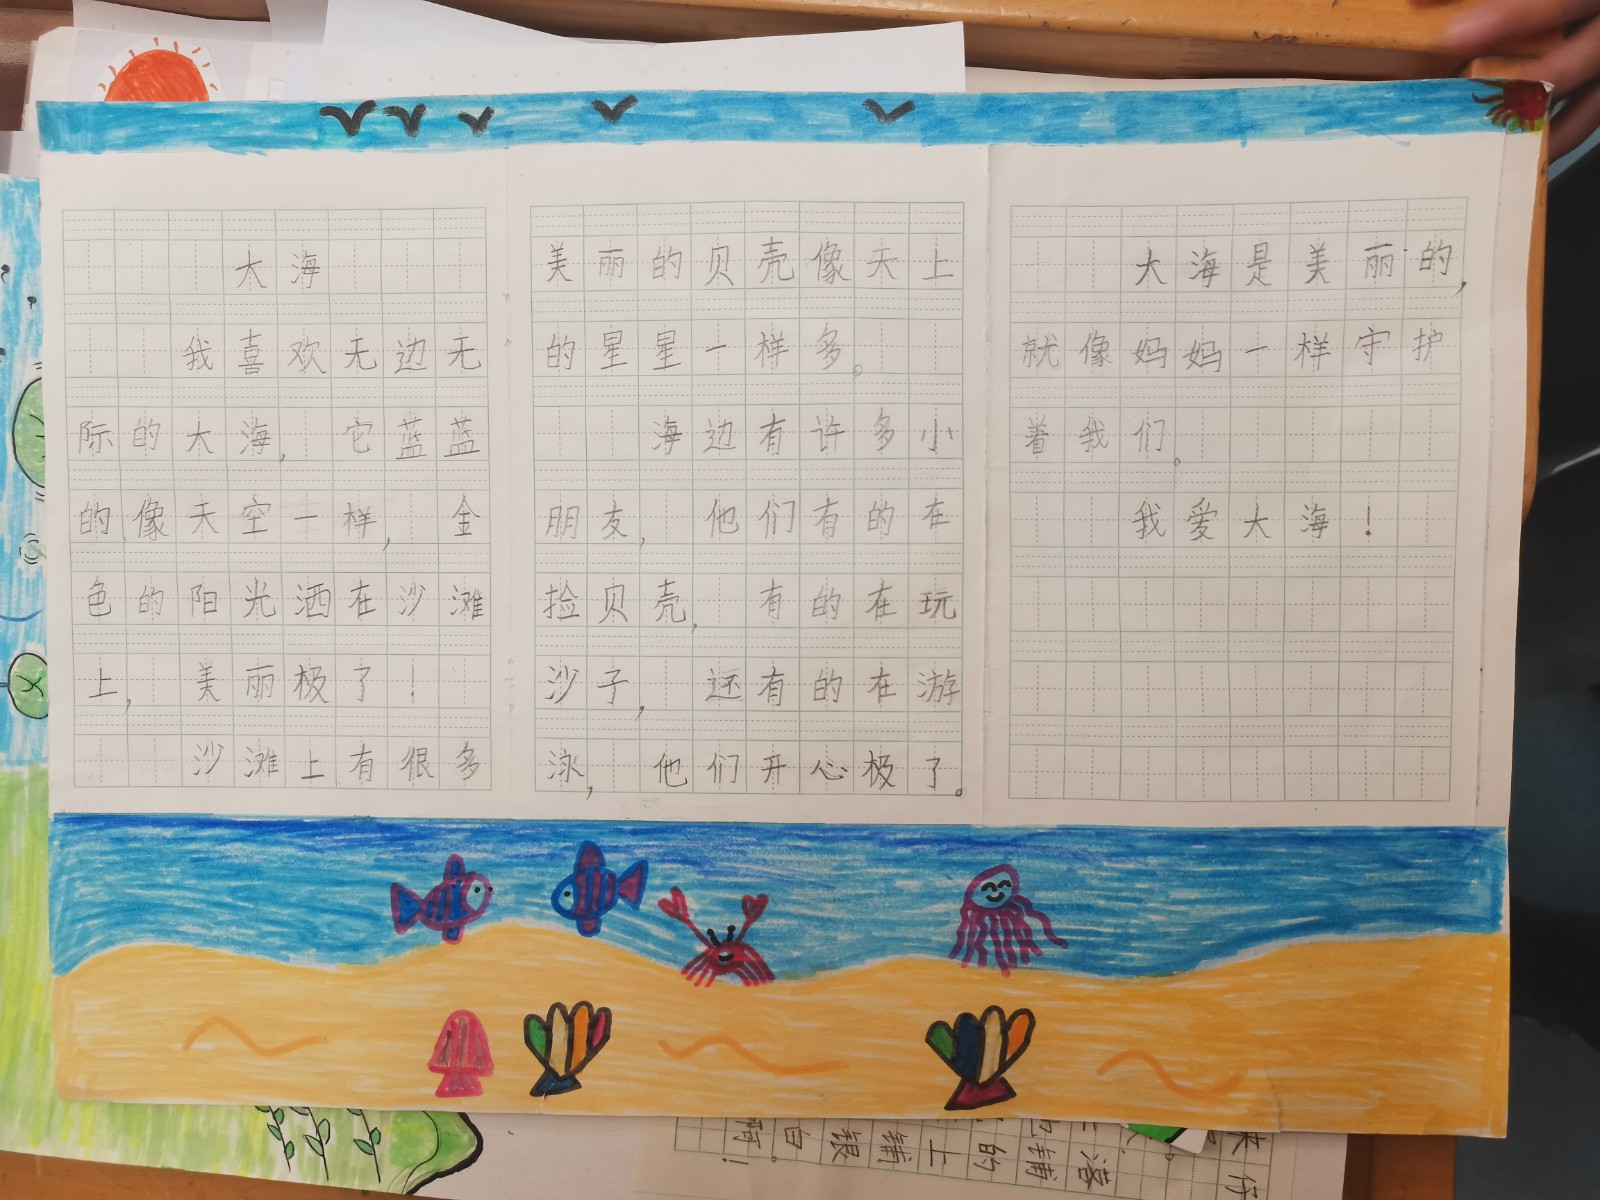 大海
我喜欢无边无
际的大海,它蓝蓝
的像天空一样,金
色的阳光洒在沙滩
上,美丽极了!
沙滩上有很多
美丽的贝壳像天上
的星星一样多。
海边有许多小
朋友,他们有的在
捡贝壳,有的在玩
沙子,还有的在游
泳,他们开心极了。
大海是美丽的,
就像妈妈一样守护
着我们。
我爱大海!